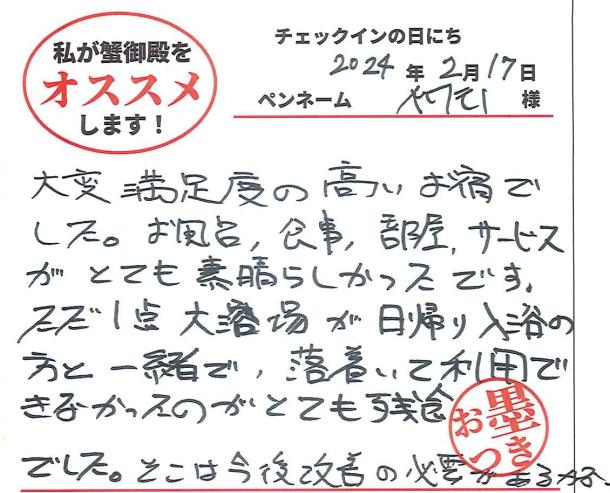 私が蟹御殿を
オススメ
します！
チェックインの日にち
2024年2月17日
ペンネーム 様
大変満足度の高いお宿で
した。お風呂，食事，部屋，サービス
がとても素晴らしかったです。
ただ1点大浴場が日帰り入浴の
方と一緒で，落着いて利用で
きなかったのがとても残念
でした。そこは今後改善の必要があるかな。
お墨
つき